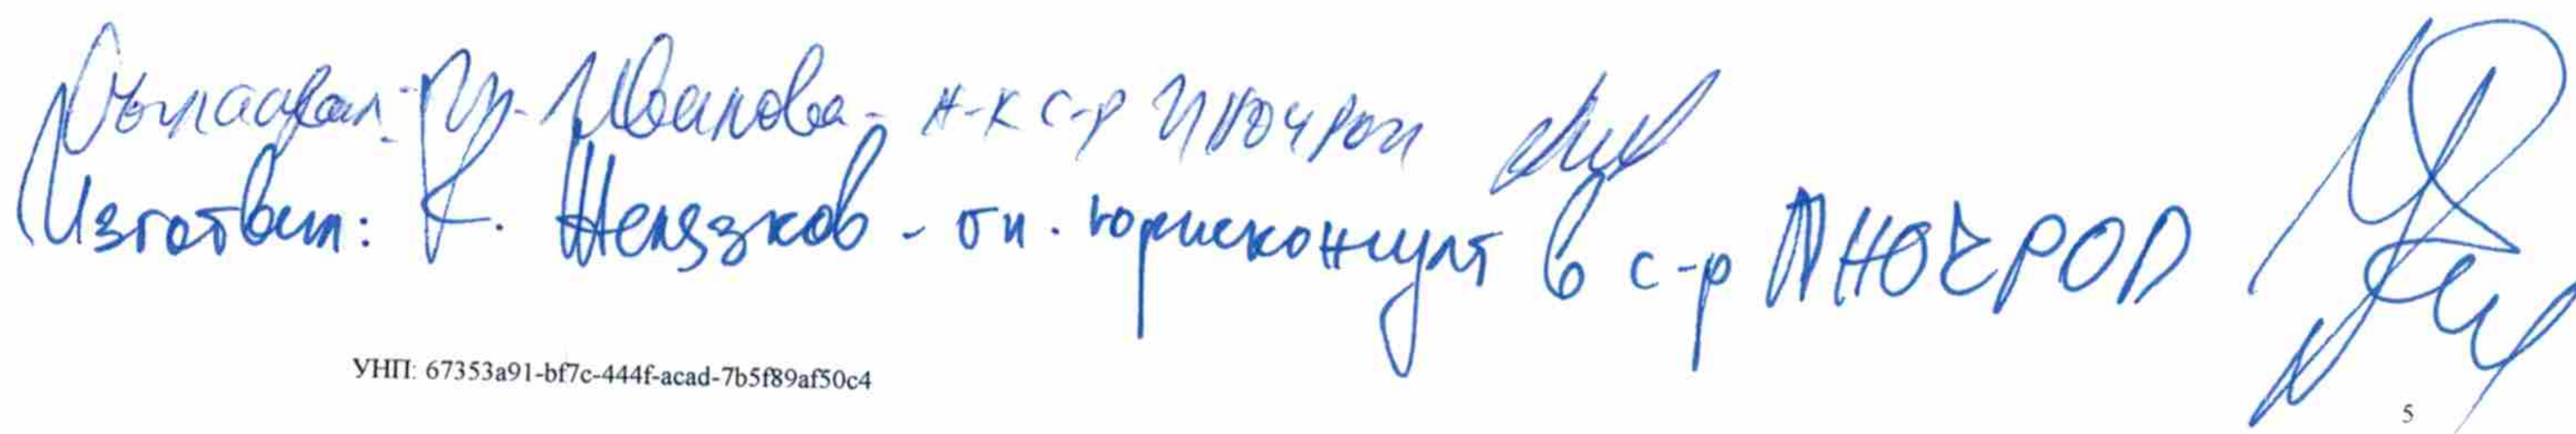 Съгласувал: Цв. Иванова - н-к с-р
Изготвил: К. Желязков - гл. юрисконсулт в с-р ПНОЧРОП
УНП: 67353a91-bf7c-444f-acad-7b5f89af50c4
5